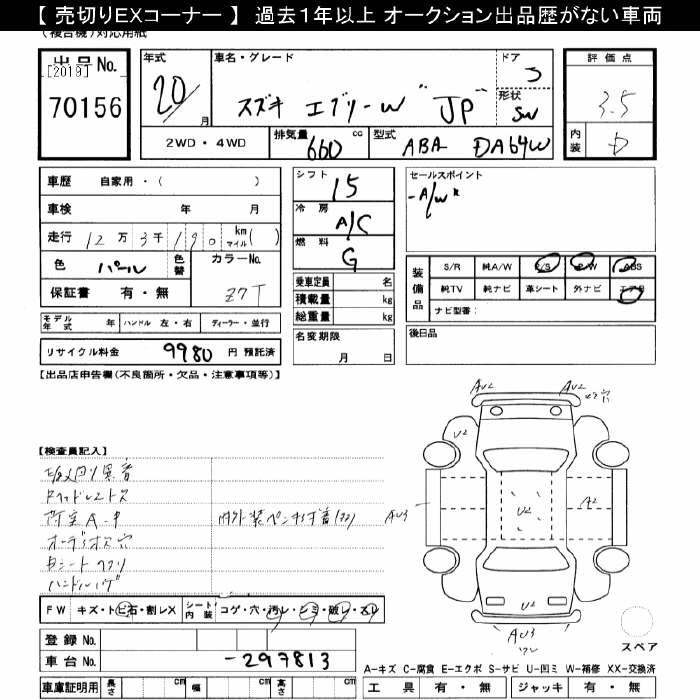 【 売切りEXコーナー 】 過去1年以上 オークション出品歴がない車両
(複合機)対応用紙
出品No.
[2019]
70156
年式
20
月
車名・グレード
スズキ エブリーW "JP"
ドア
5
形状
SW
評価点
3.5
内装
D
2WD・4WD
排気量
660
cc
型式
ABA DA64W
車歴 自家用・( )
車検 年 月
走行 12万3千190 km マイル( )
色 パール
色替
カラーNo.
Z7T
保証書 有・無
シフト
I5
冷房
A/C
燃料
G
乗車定員 名
積載量 kg
総重量 kg
セールスポイント
-A/W
装備品
S/R 純A/W P/S P/W ABS
純TV 純ナビ 革シート 外ナビ エアB
ナビ型番:
モデル年式 年 ハンドル 左・右 ディーラー・並行
名変期限
月 日
後日品
リサイクル料金 9980 円 預託済
【出品店申告欄(不良箇所・欠品・注意事項等)】
【検査員記入】
オーディオ穴
内外装ペンキ付着
AU2
AU2
穴
U2
AU3
U2
A2
U2
AU3
FW キズ・トビ石・割レX
シート内装 コゲ・穴・汚レ・シミ・破レ・スレ
登録No.
車台No. -297813
スペア
A-キズ C-腐食 E-エクボ S-サビ U-凹ミ W-補修 XX-交換済
車庫証明用 長さ cm 幅 cm 高さ cm
工具 有・無 ジャッキ 有・無